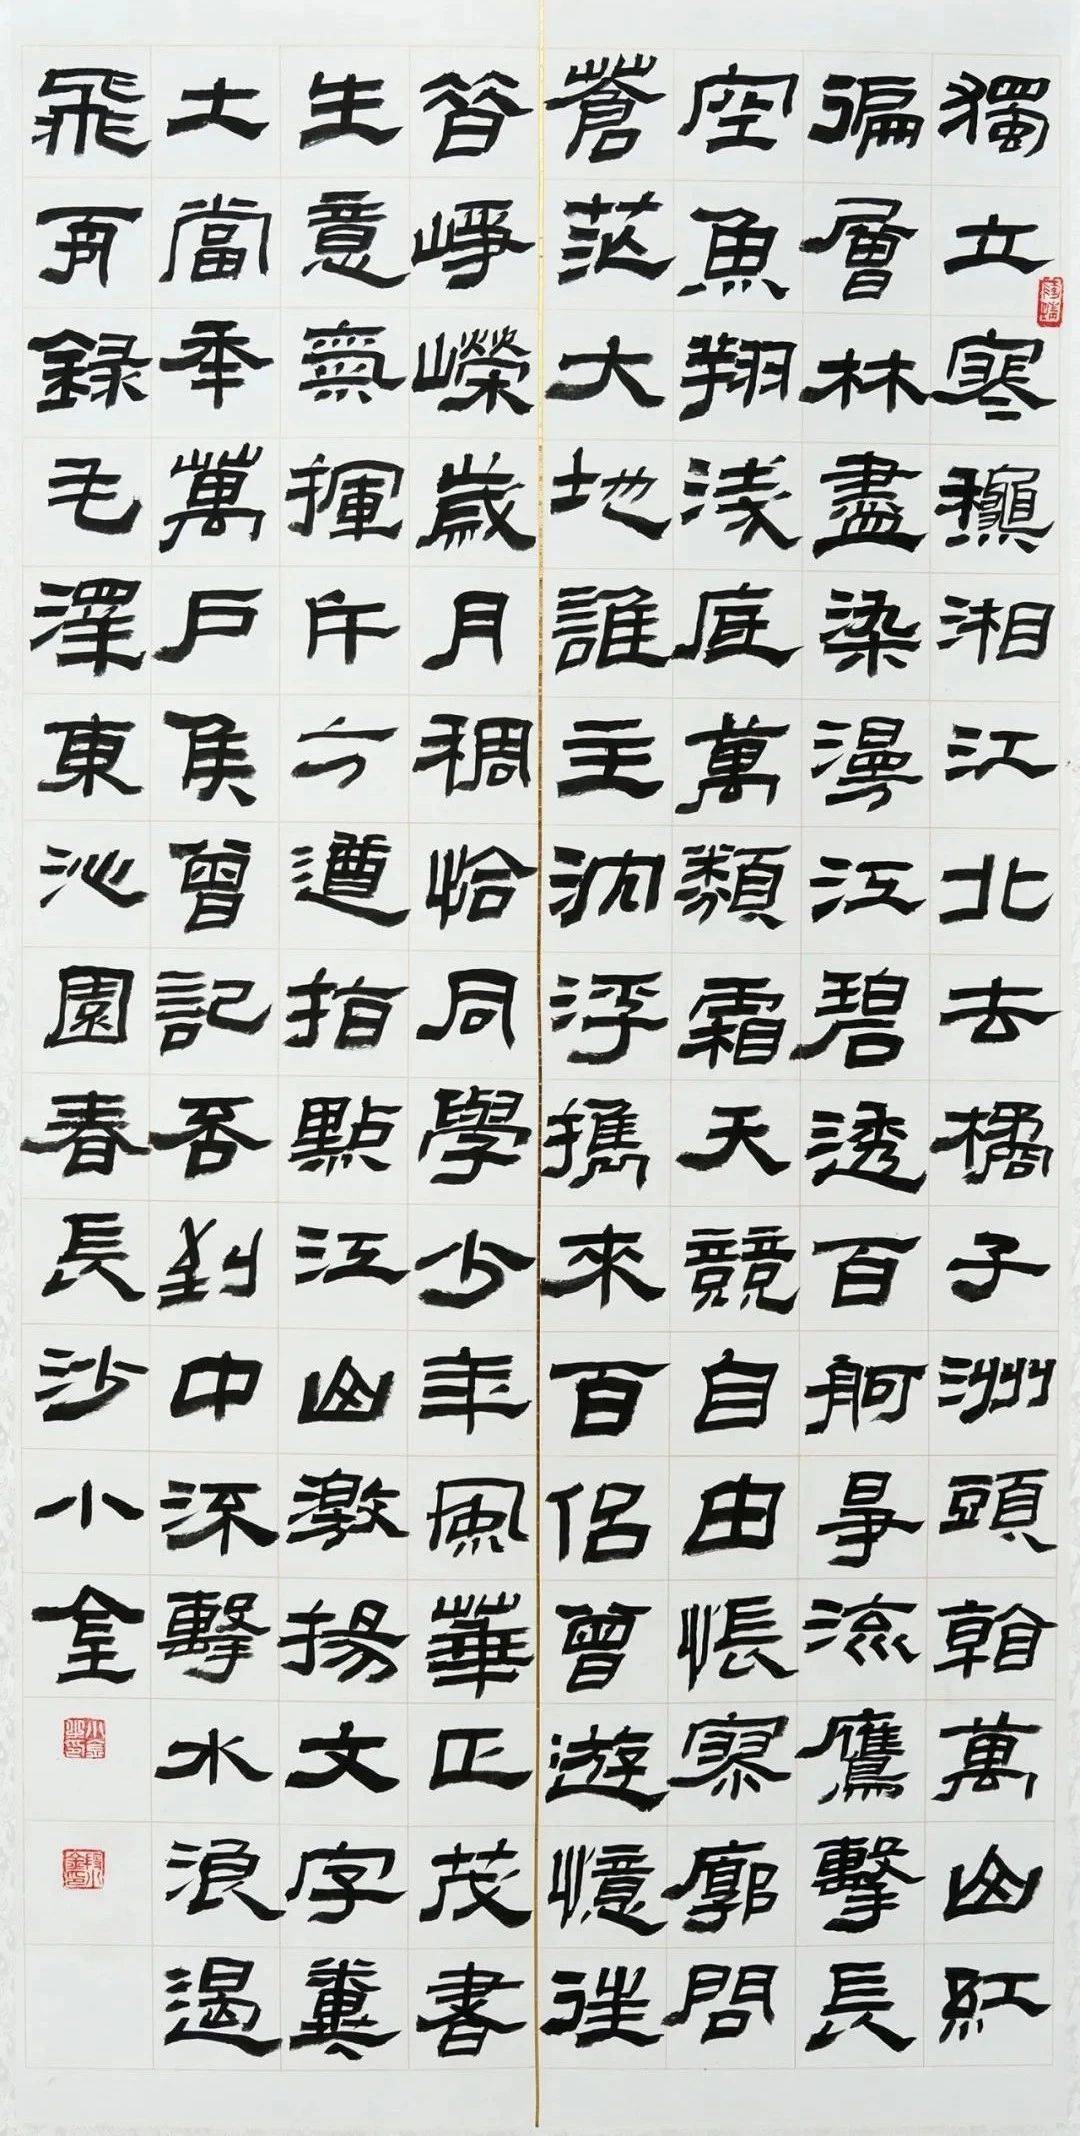 獨立寒龝湘江北去橘子洲頭看萬山紅
徧層林盡染漫江碧透百舸爭流鷹擊長
空魚翔淺底萬類霜天競自由悵寥廓問
蒼茫大地誰主沈浮攜來百侶曾遊憶往
昔崢嶸歲月稠恰同學少年風華正茂書
生意氣揮斥方遒指點江山激揚文字糞
土當年萬戶侯曾記否到中流擊水浪遏
飛舟錄毛澤東沁園春長沙小金